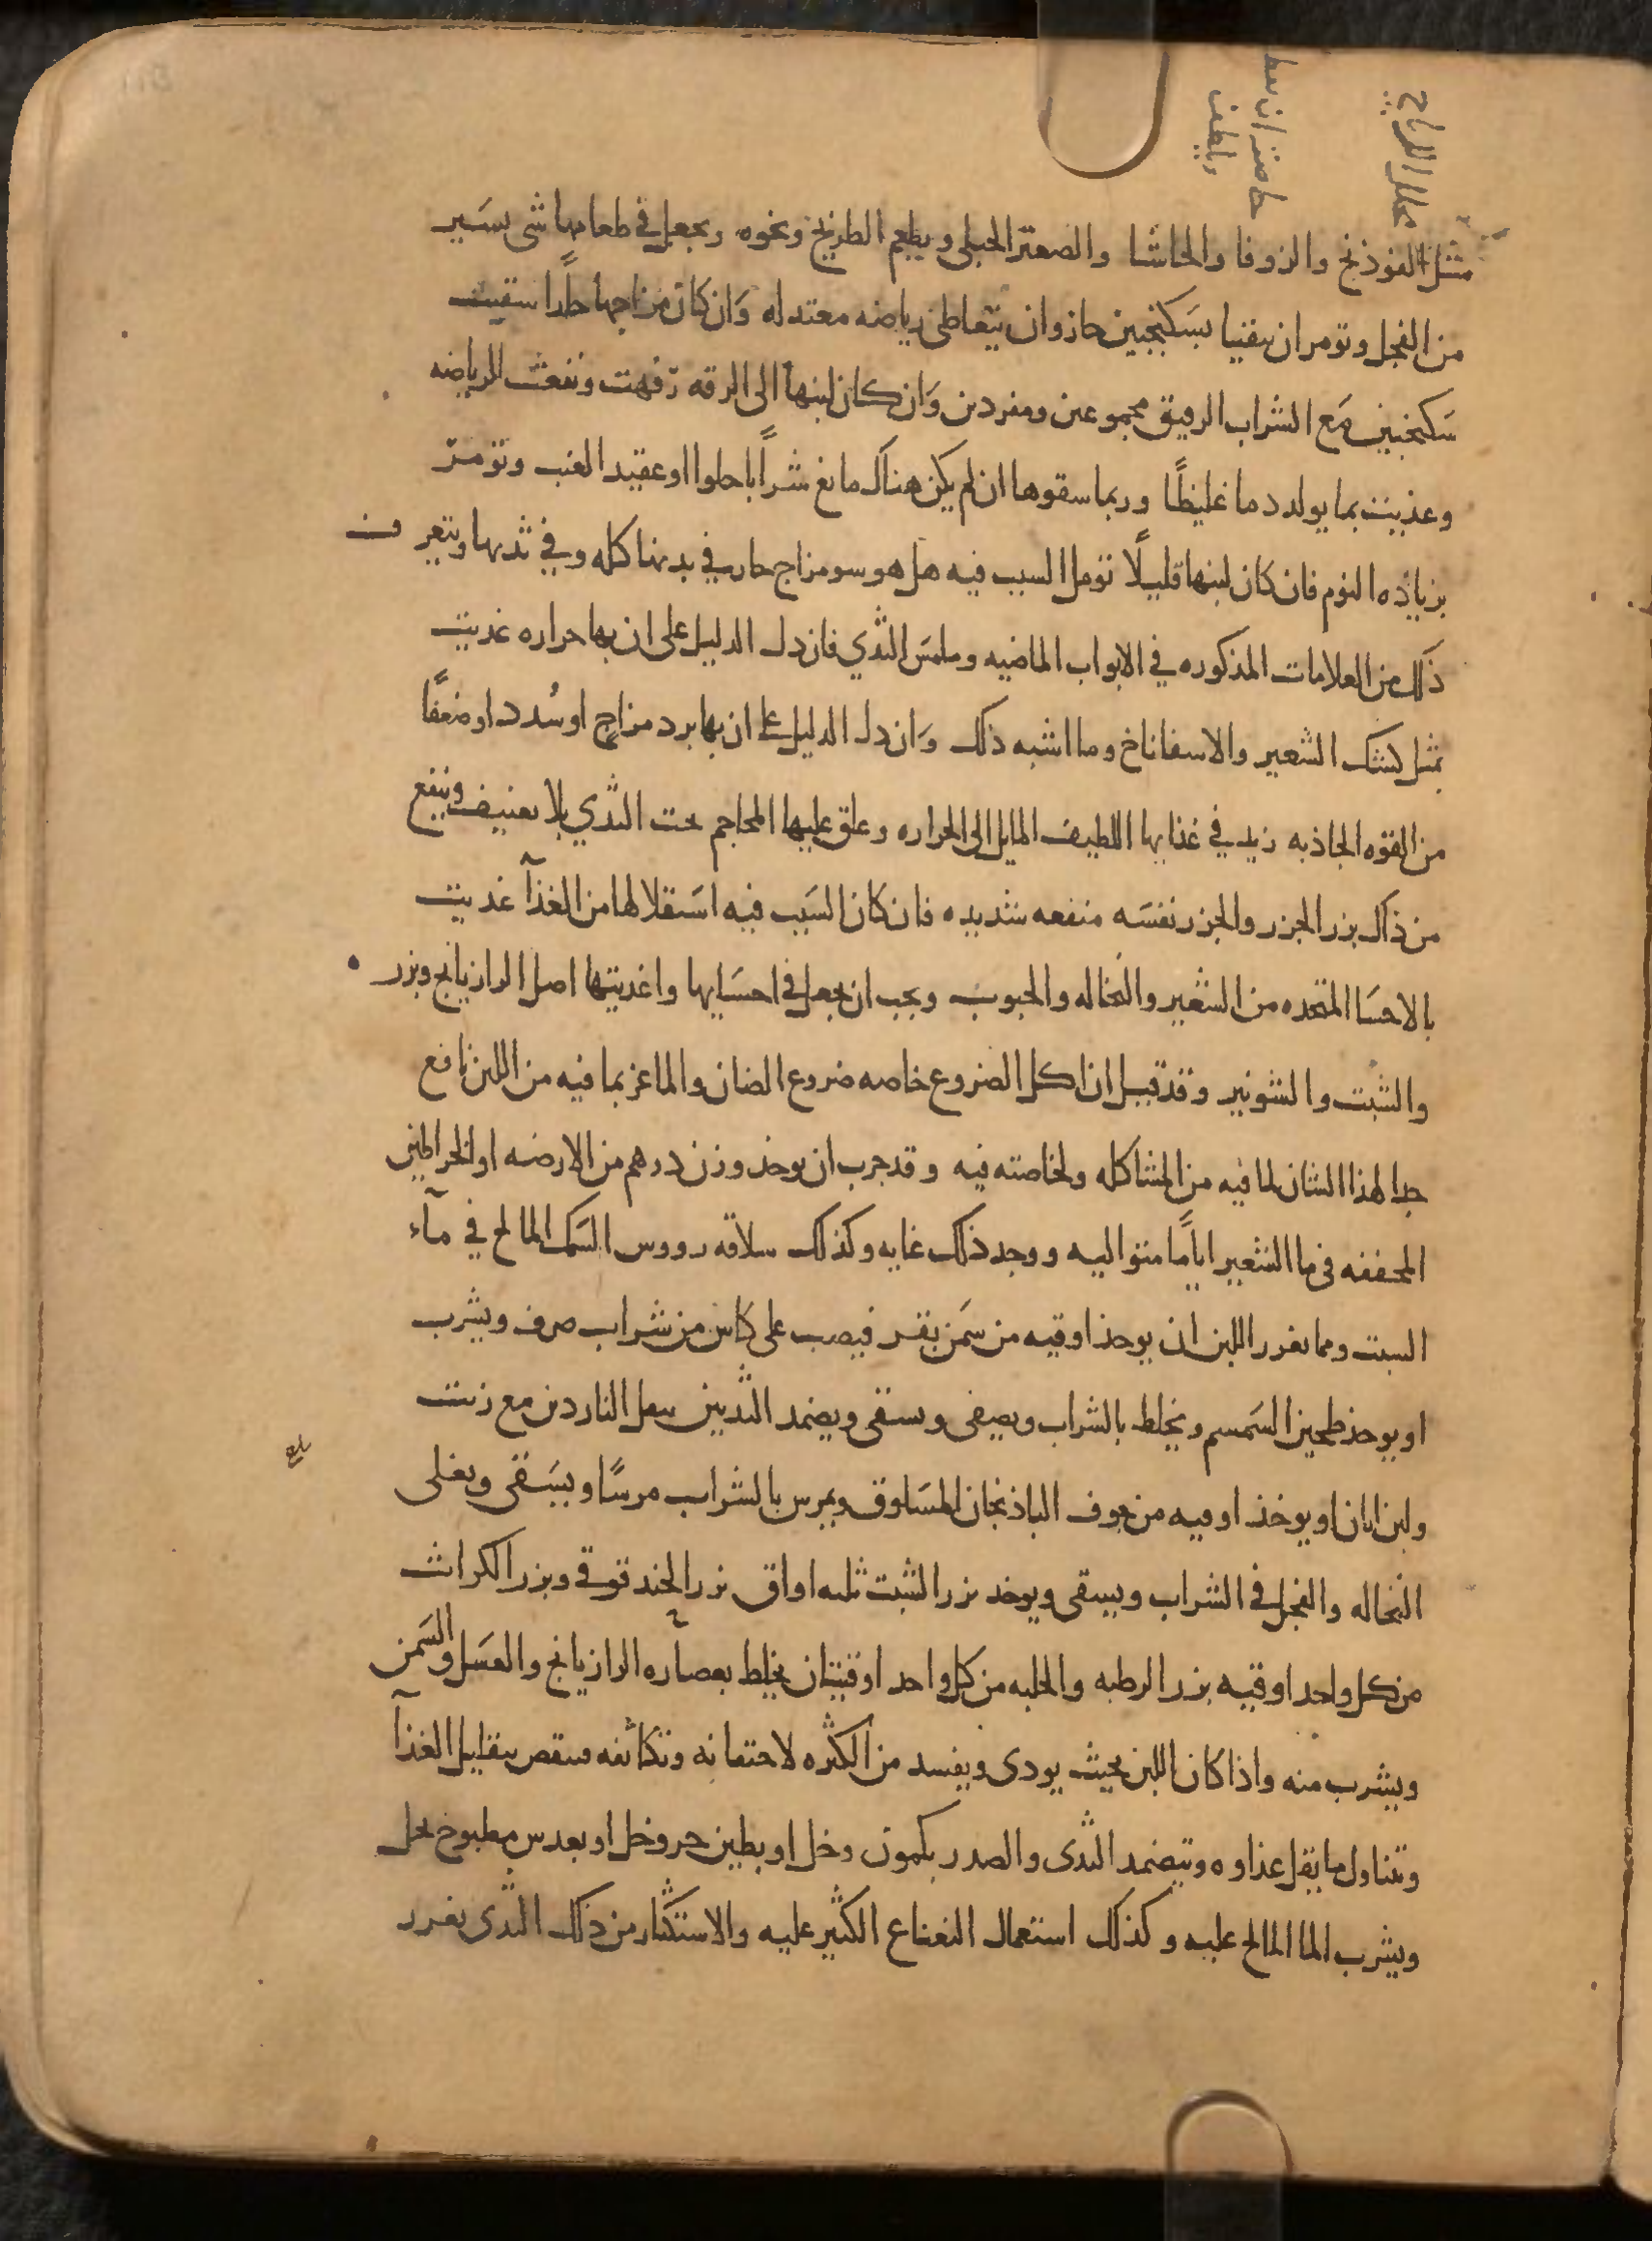 علل الرياح
حاضزان سط
ولطف
مثل الفوذنج والزوفا والحاشا والصعتر الجبلى ويطعم الطريخ ونحوه ويجعل في طعامها شى يسير
من الفجل وتومر ان يتقيا بسكنجبين حاذ وان يتعاطى رياضه معتدله وان كان مزاجها حارًا سقيت
سكنجبين مع الشراب الرقيق مجموعين ومفردين وان كان لبنها الى الرقه رفهت ومنعت الرياضه
وغذيت بما يولد دما غليظًا وربما سقوها ان لم يكن هناك مانع شرابًا حلوا او عقيد العنب وتومر
بزياده النوم فان كان لبنها قليلًا تومل السبب فيه هل هو سو مزاج حار في بدنها كله وفي ثديها ويتعرف
ذلك من العلامات المذكوره في الابواب الماضيه وملمس الثدي فان دل الدليل على ان بها حراره غذيت
بمثل كشك الشعير والاسفاناخ وما اشبه ذلك وان دل الدليل على ان بها برد مزاج او سُدد او ضعفًا
من القوه الجاذبه زيد في غذايها اللطيف المايل الى الحراره وعلق عليها المحاجم تحت الثدي بلا تعنيف وينفع
من ذلك بزر الجزر والجزر نفسه منفعه شديده فان كان السبب فيه استقلالها من الغذآ غذيت
بالاحسا المتخذه من الشعير والنخاله والحبوب ويجب ان يجعل في احسايها واغذيتها اصل الرازيانج وبزره
والشبت والشونيز وقد قيل ان اكل الضروع خاصه ضروع الضان والماعز بما فيه من اللبن نافع
جدا لهذا الشان لما فيه من المشاكله ولخاصته فيه وقد جرب ان يوخذ وزن درهم من الارضه او الخراطين
المجففه في ما الشعير ايامًا متواليه ووجد ذلك غايه وكذلك سلاقه رووس السمك المالح في مآء
الشبت ومما يغزر اللبن ان يوخذ اوقيه من سمن بقر فيصب على كاس من شراب صرف ويشرب
او يوخذ طحين السمسم ويخلط بالشراب ويصفى ويسقى ويضمد الثديين بثفل الناردين مع زيت
ولبن اتان او يوخذ اوقيه من جوف الباذنجان المسلوق ويمرس بالشراب مرسًا ويسقى ويغلى
النخاله والفجل في الشراب ويسقى ويوخذ بزر الشبت ثلثه اواق بزر الحندقوقي وبزر الكراث
من كل واحد اوقيه بزر الرطبه والحلبه من كل واحد اوقيتان يخلط بعصاره الرازيانج والعسل والسمن
ويشرب منه واذا كان اللبن بحيث يودى ويفسد من الكثره لاحتقانه وتكاثفه فينقص بتقليل الغذآ
وتناول ما يقل غذاوه وتيضمد الثدى والصدر بكمون وخل او بطين حر وخل او بعدس مطبوخ بخل
ويشرب الما المالح عليه وكذلك استعمال النعناع الكثير عليه والاستكثار من ذلك الثدى يغزر